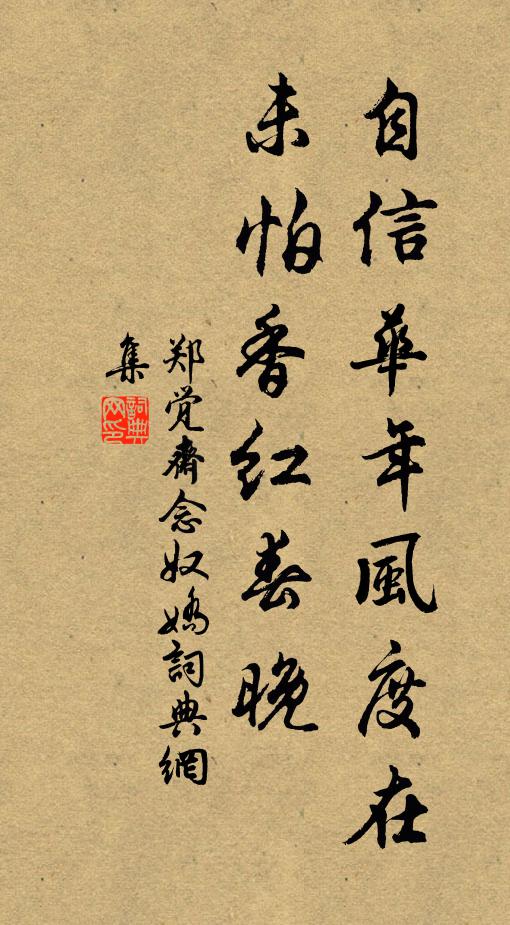 自信華年風度在
未怕香紅春晚
郑觉齋念奴嬌詞典網
集
詞典
网印